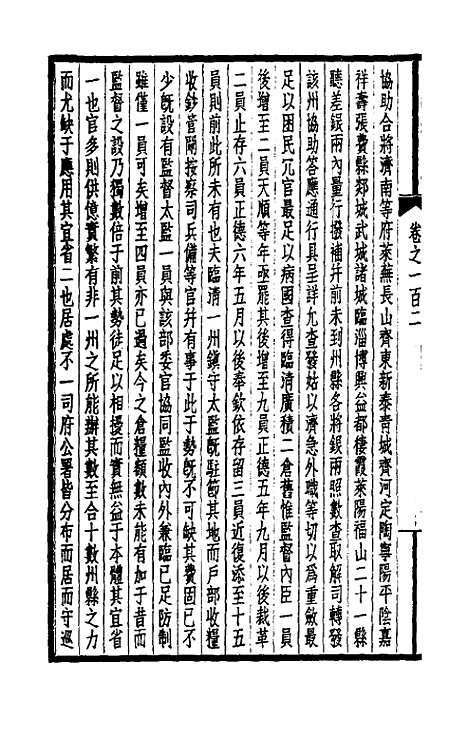 卷之一百二
協助合將濟南等府萊蕪長山齊東新泰青城齊河定陶寧陽平陰嘉
祥壽張費縣郯城武城諸城臨淄博興益都棲霞萊陽福山二十一縣
聽差銀兩內量行撥補幷前未到州縣各將銀兩照數查取解司轉發
該州協助答應通行具呈詳允查發姑以濟急外職等切以為重斂最
足以困民冗官最足以病國查得臨清廣積二倉舊惟監督內臣一員
後增至二員天順等年亟罷其後增至九員正德五年九月以後裁革
二員止存六員正德六年五月以後奉欽依存留三員近復添至十五
員則前此所未有也夫臨清一州鎮守太監既駐節其地而戶部收糧
收鈔管閘按察司兵備等官例皆有事于此于勢既不可缺其費固已不
少既設有監督太監一員與該部委官協同監收內外兼臨已足防制
雖僅一員可矣增至四員亦已過矣今之倉糧額數未能有加于昔而
監督之設乃獨數倍于前其勢徒足以相擾而實無益于本體其宜省
一也官多則供億實繁有非一州之所能辦其數至合十數州縣之力
而尤缺于應用其宜省二也居處不一司府公署皆分布而居而守巡